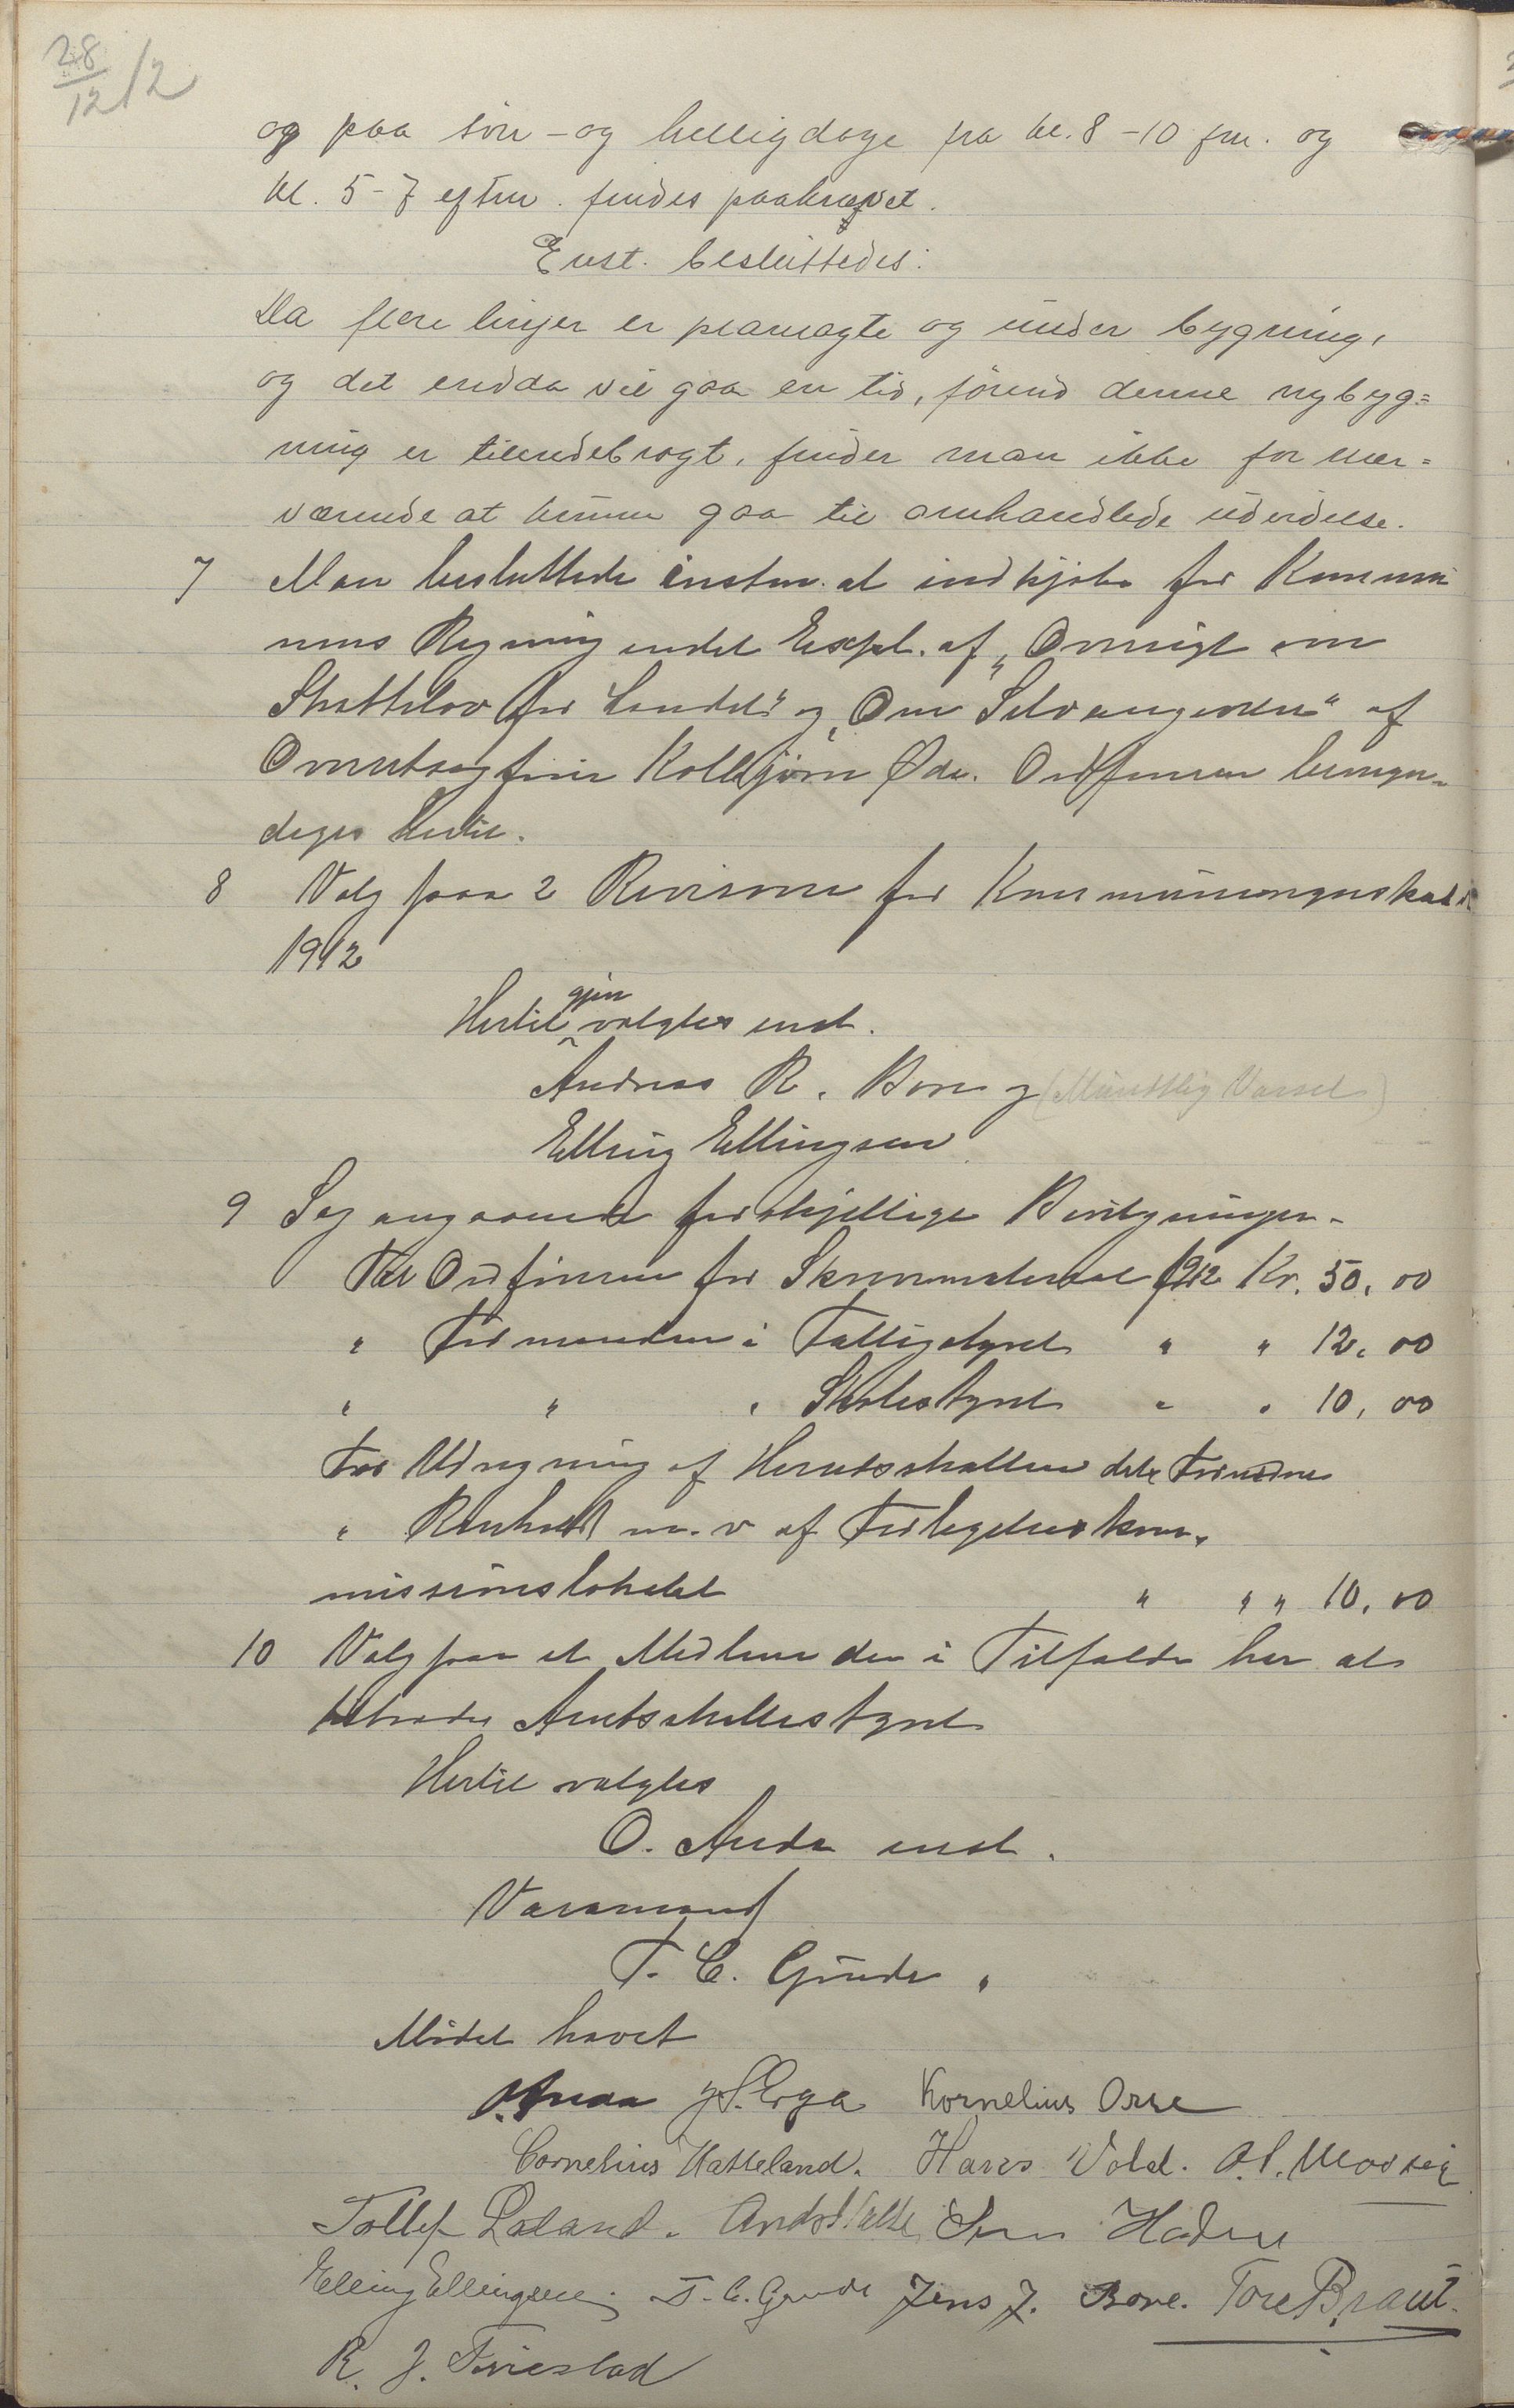 28/12 12
og paa søn- og helligdage fra kl. 8-10 fm. og
kl. 5-7 eftm. findes paakrævet.
Enst. besluttedes:
Da flere linjer er planlagte og under bygning,
og det endda vil gaa en tid, førend denne nybyg=
ning er tilendebragt, finder man ikke for nær=
værende at kunne gaa til omhandlede udvidelse.
7 Man besluttede enstem. at indkjøbe for Kommu
nens Regning endel Expl. af "Omrigt om
Skattelov for Landet" og "Om Selvangivelsen" af
Kolbjørn Øde. Ordføreren bemyn-
diges hertil.
8 Valg paa 2 Revisorer for Kommuneregnskabet
1912
Hertil gjenvalgtes enst.
Andreas R. Bore og (Mundtlig Varsel)
Elling Ellingsen
9 Sag angaaende forskjellige Bevilgninger.
Til Ordføreren for Skrivmateriael 1912 Kr. 50,00
" Formanden i Fattigstyret " " 12,00
" " " Skolestyret " " 10,00
For Udregning af Herredsskatten dette
" Renhold m.v. af Forligelseskom-
missionslokalet " " " 10,00
10 Valg paa et Medlem der i Tilfælde har at
tiltræde Amtsskolestyret
Hertil valgtes
O. Anda enst.
Varamand
T. C. Grude "
Mødet hævet
O. Anda J. S. Erga Kornelius Orre
Cornelius Hatteland. Hans Vold.
Tollef Laland. Sven Hadne
Elling Ellingsen. T. C. Grude Jens J. Bore. Tore Braut.
R. J. Friestad